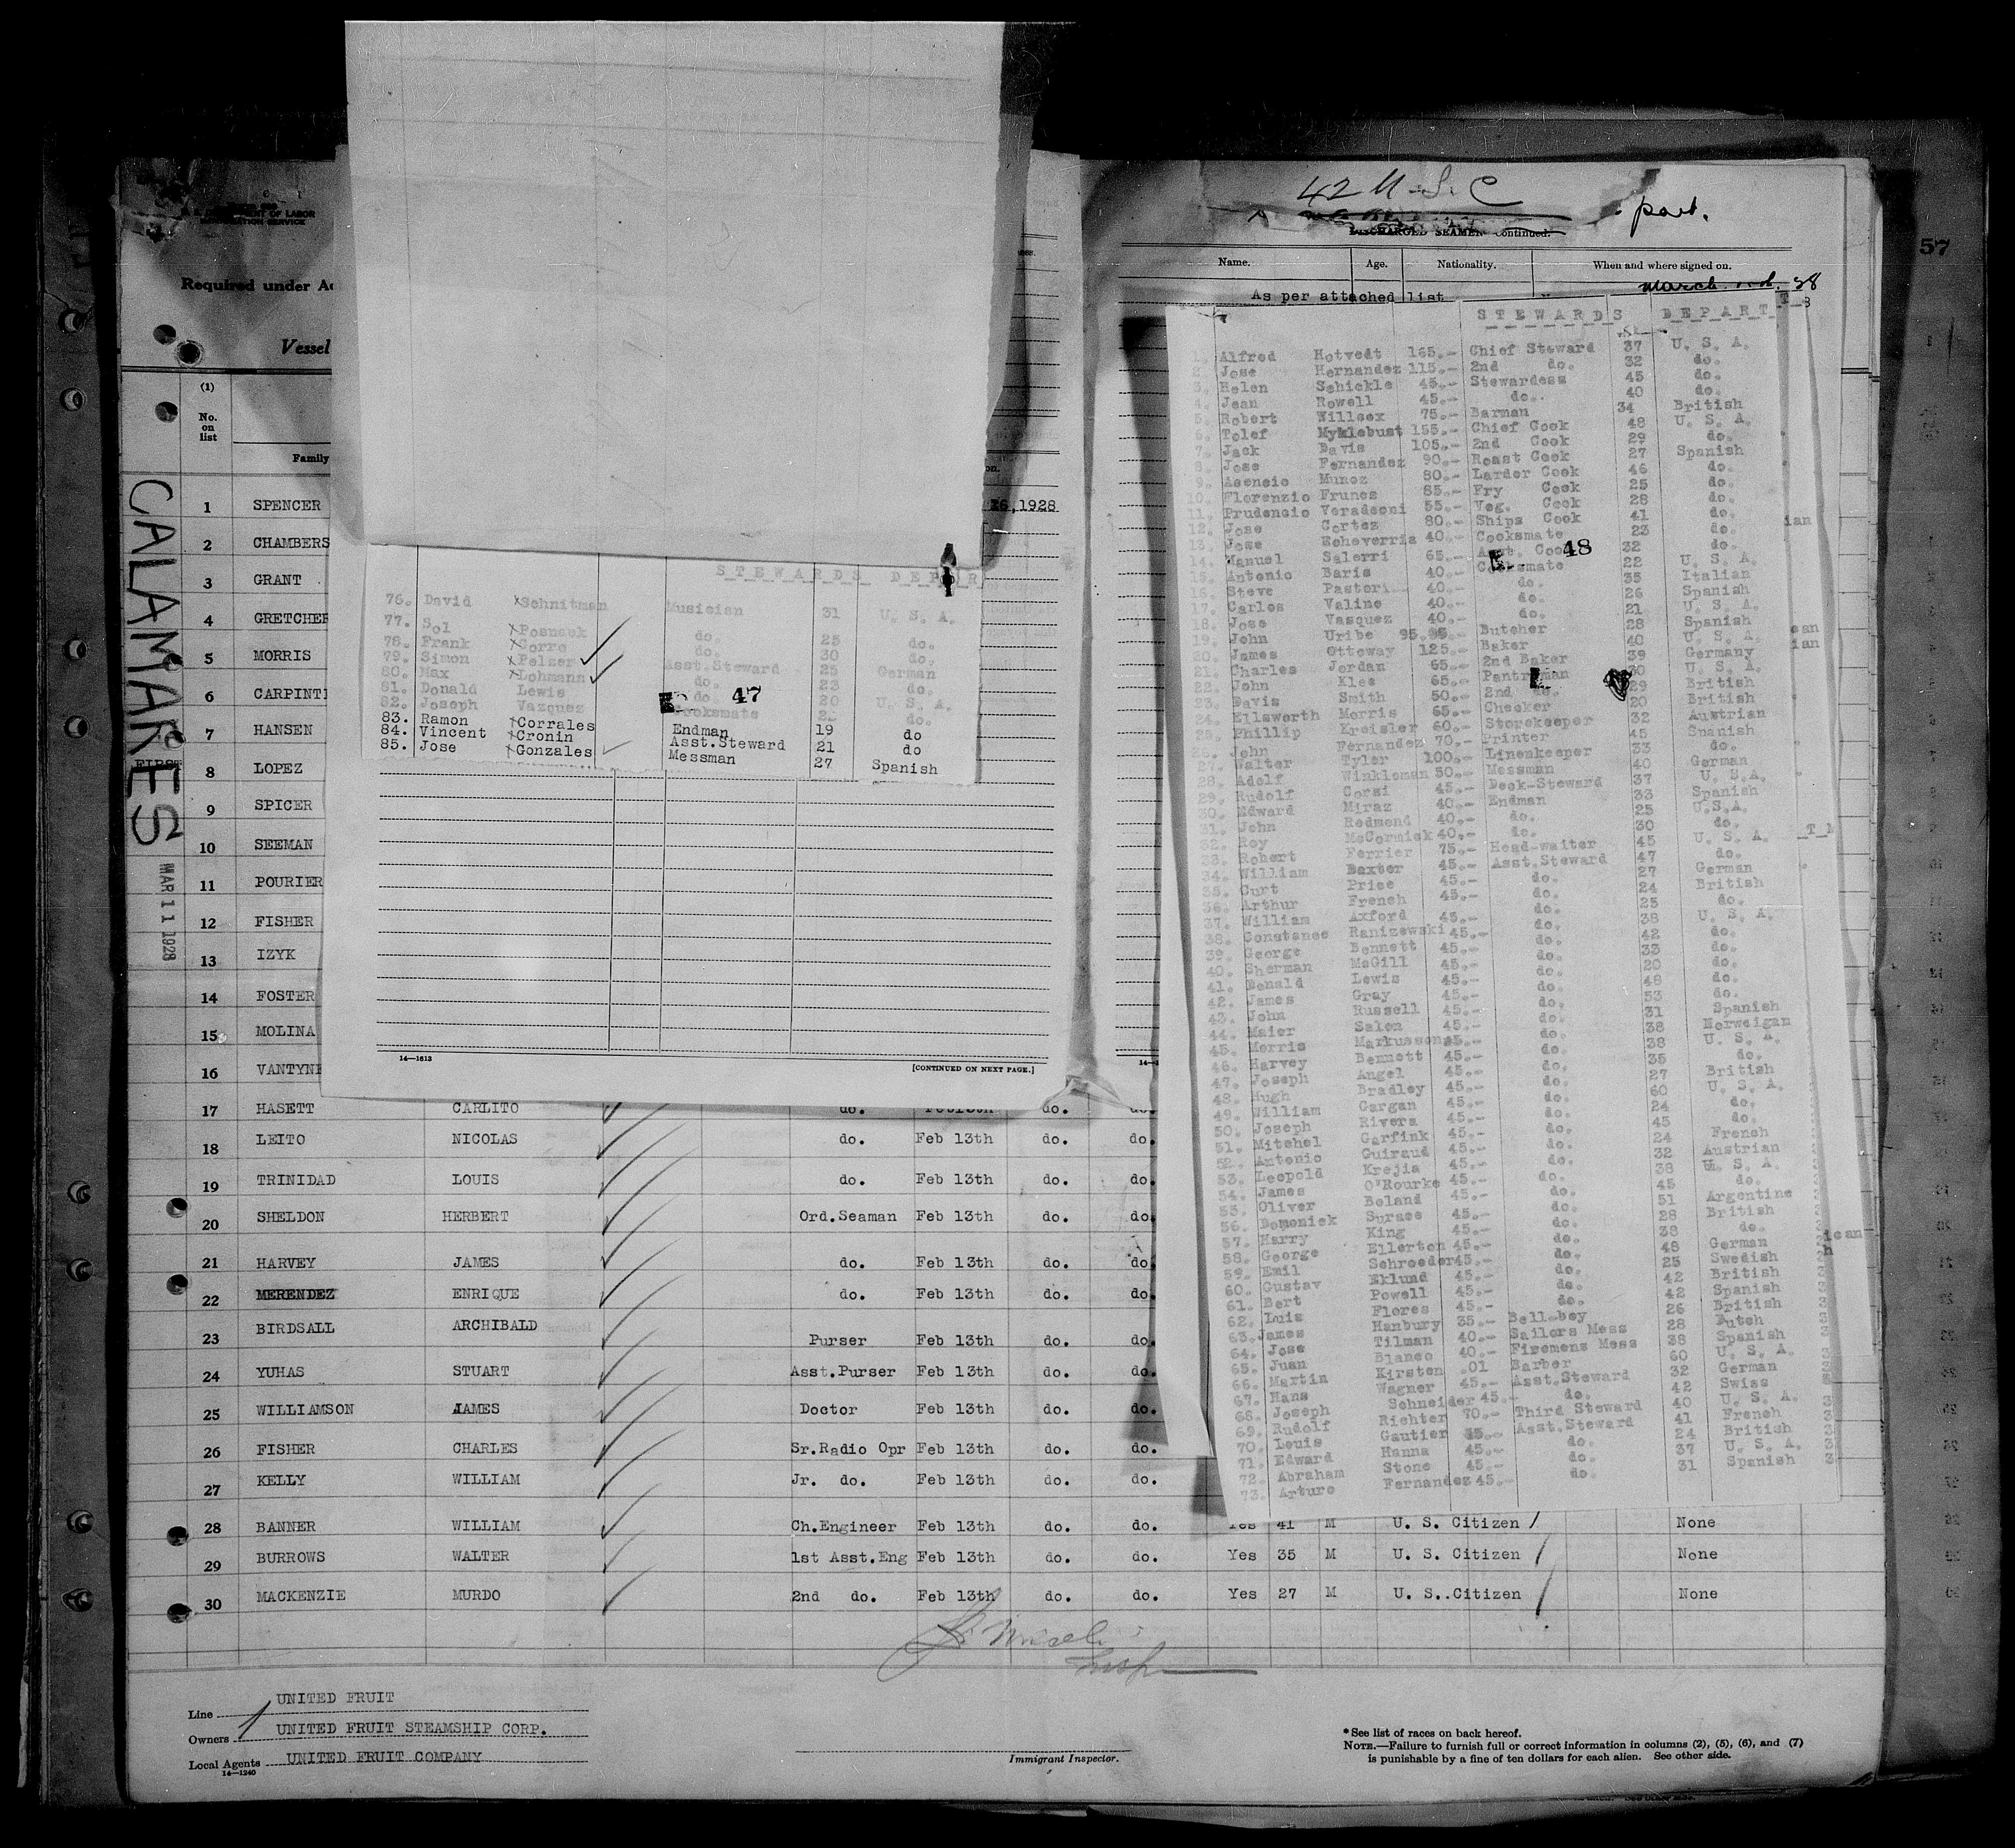 42 M-S. C
part.
57
DISCHARGED SEAMEN Continued.
Name. Age. Nationality. When and where signed on.
As per attached list
OF LABOR
Required under
Vessel
(1)
No. on list
Family
CALAMARES
MAR 11 1928
1 SPENCER
2 CHAMBERS
3 GRANT
4 GRETCHER
5 MORRIS
6
7 HANSEN
FIRST
8 LOPEZ
9 SPICER
10 SEEMAN
11 POURIER
12 FISHER
13 IZYK
14 FOSTER
15 MOLINA
16
17 HASETT CARLITO do. do.
18 LEITO NICOLAS do. Feb 13th do. do.
19 TRINIDAD LOUIS do. Feb 13th do. do.
20 SHELDON HERBERT Ord.Seaman Feb 13th do. do.
21 HARVEY JAMES do. Feb 13th do. do.
22 MERENDEZ ENRIQUE do. Feb 13th do. do.
23 BIRDSALL ARCHIBALD Purser Feb 13th do. do.
24 YUHAS STUART Asst.Purser Feb 13th do. do.
25 WILLIAMSON JAMES Doctor Feb 13th do. do.
26 FISHER CHARLES Sr.Radio Opr Feb 13th do. do.
27 KELLY WILLIAM Jr. do. Feb 13th do. do.
28 BANNER WILLIAM Ch.Engineer Feb 13th do. do. Yes 41 M U. S. Citizen None
29 BURROWS WALTER 1st Asst.Eng Feb 13th do. do. Yes 35 M U. S. Citizen None
30 MACKENZIE MURDO 2nd do. Feb 13th do. do. Yes 27 M U. S. Citizen None
Line UNITED FRUIT
Owners UNITED FRUIT STEAMSHIP CORP.
Local Agents UNITED FRUIT COMPANY
14—1240
Immigrant Inspector.
*See list of races on back hereof.
NOTE.—Failure to furnish full or correct information in columns (2), (5), (6), and (7)
is punishable by a fine of ten dollars for each alien. See other side.
26,1928
STEWARDS DEPAR
76. David Schnitman Musician 31 U. S. A.
77. Sol Posnack do. 25 do.
78. Frank Gorro do. 30 do.
79. Simon Pelzer Asst.Steward 25 German
80. Max Lohmann do. 23 do.
81. Donald Lewis do. 20 U. S. A.
82. Joseph Vazquez Cooksmate do.
83. Ramon Corrales Endman 19 do
84. Vincent Cronin Asst.Steward 21 do
85. Jose Gonzales Messman 27 Spanish
47
14—1613
[CONTINUED ON NEXT PAGE.]
STEWARDS DEPART
1. Alfred Hotvedt 165.- Chief Steward 37 U. S. A.
2. Jose Hernandez 115.- 2nd do. 32 do.
3. Helen Schickle 45.- Stewardess 45 do.
4. Jean Rowell 45.- do. 40 do.
5. Robert Willcox 75.- Barman 34 British
6. Tolef Myklebust 155.- Chief Cook 48 U. S. A.
7. Jack Davis 105.- 2nd Cook 29 do.
8. Jose Fernandez 90.- Roast Cook 27 Spanish
9. Asencio Munoz 80.- Larder Cook 46 do.
10. Florenzio Frunes 85.- Fry Cook 25 do.
11. Prudencio Veradeoni 55.- Veg. Cook 28 do.
12. Jose Cortez 80.- Ships Cook 41 do.
13. Jose Echeverria 40.- Cooksmate 23 do.
14. Manuel Salerri 65.- Asst. Cook 32 do.
48
15. Antonio Baris 40.- Cooksmate 22 U. S. A.
16. Steve Pastori 40.- do. 35 Italian
17. Carlos Valine 40.- do. 26 Spanish
18. Jose Vasquez 40.- do. 21 U. S. A.
19. John Uribe 95.- Butcher 28 Spanish
20. James Otteway 125.- Baker 40 U. S. A.
21. Charles Jordan 65.- 2nd Baker 39 Germany
22. John Klee 65.- Pantryman 30 U. S. A.
23. Davis Smith 50.- 2nd do. 29 British
24. Ellsworth Morris 65.- Checker 20 British
25. Phillip Kreisler 60.- Storekeeper 32 Austrian
26. John Fernandez 70.- Printer 45 Spanish
27. Walter Tyler 100.- Linenkeeper 33 do.
28. Adolf Winkleman 50.- Messman 40 German
29. Rudolf Corsi 45.- Deck-Steward 37 U. S.A.
30. Edward Miraz 40.- Endman 33 Spanish
31. John Redmond 40.- do. 25 U.S.A.
32. Roy McCormick 40.- do. 30 do.
33. Robert Ferrier 75.- Head-waiter 45 U. S. A.
34. William Baxter 45.- Asst.Steward 47 do.
35. Curt Price 45.- do. 27 German
36. Arthur French 45.- do. 24 British
37. William Axford 45.- do. 25 do.
38. Constance Ranizewski 45.- do. 38 U. S. A.
39. George Bennett 45.- do. 42 do.
40. Sherman McGill 45.- do. 33 do.
41. Donald Lewis 45.- do. 20 do.
42. James Gray 45.- do. 48 do.
43. John Russell 45.- do. 53 do.
44. Maier Salen 45.- do. 31 Spanish
45. Morris Markussen 45.- do. 38 Norweigan
46. Harvey Bennett 45.- do. 38 U. S. A.
47. Joseph Angel 45.- do. 35 do.
48. Hugh Bradley 45.- do. 27 British
49. William Gargan 45.- do. 60 U. S. A.
50. Joseph Rivera 45.- do. 24 do.
51. Mitchel Garfink 45.- do. 45 do.
52. Antonio Guiraud 45.- do. 24 French
53. Leopold Krejia 45.- do. 32 Austrian
54. James O'Rourke 45.- do. 38 U. S. A.
55. Oliver Boland 45.- do. 45 do.
56. Domenick Surace 45.- do. 51 Argentine
57. Harry King 45.- do. 28 British
58. George Ellerton 45.- do. 38 do.
59. Emil Schroeder 45.- do. 48 German
60. Gustav Eklund 45.- do. 25 Swedish
61. Bert Powell 45.- do. 42 British
62. Luis Flores 45.- do. 42 Spanish
63. James Hanbury 35.- Bell-boy 26 British
64. Jose Tilman 40.- Sailors Mess 28 Dutch
65. Juan Blanco 40.- Firemens Mess 38 Spanish
66. Martin Kirsten .01 Barber 60 U. S. A.
67. Hans Wagner 45.- Asst.Steward 32 German
68. Joseph Schneider 45.- do. 42 Swiss
69. Rudolf Richter 70.- Third Steward 40 U. S. A.
70. Louis Gautier 45.- Asst.Steward 41 French
71. Edward Hanna 45.- do. 24 British
72. Abraham Stone 45.- do. 37 U. S. A.
73. Arturo Fernandez 45.- do. 31 Spanish